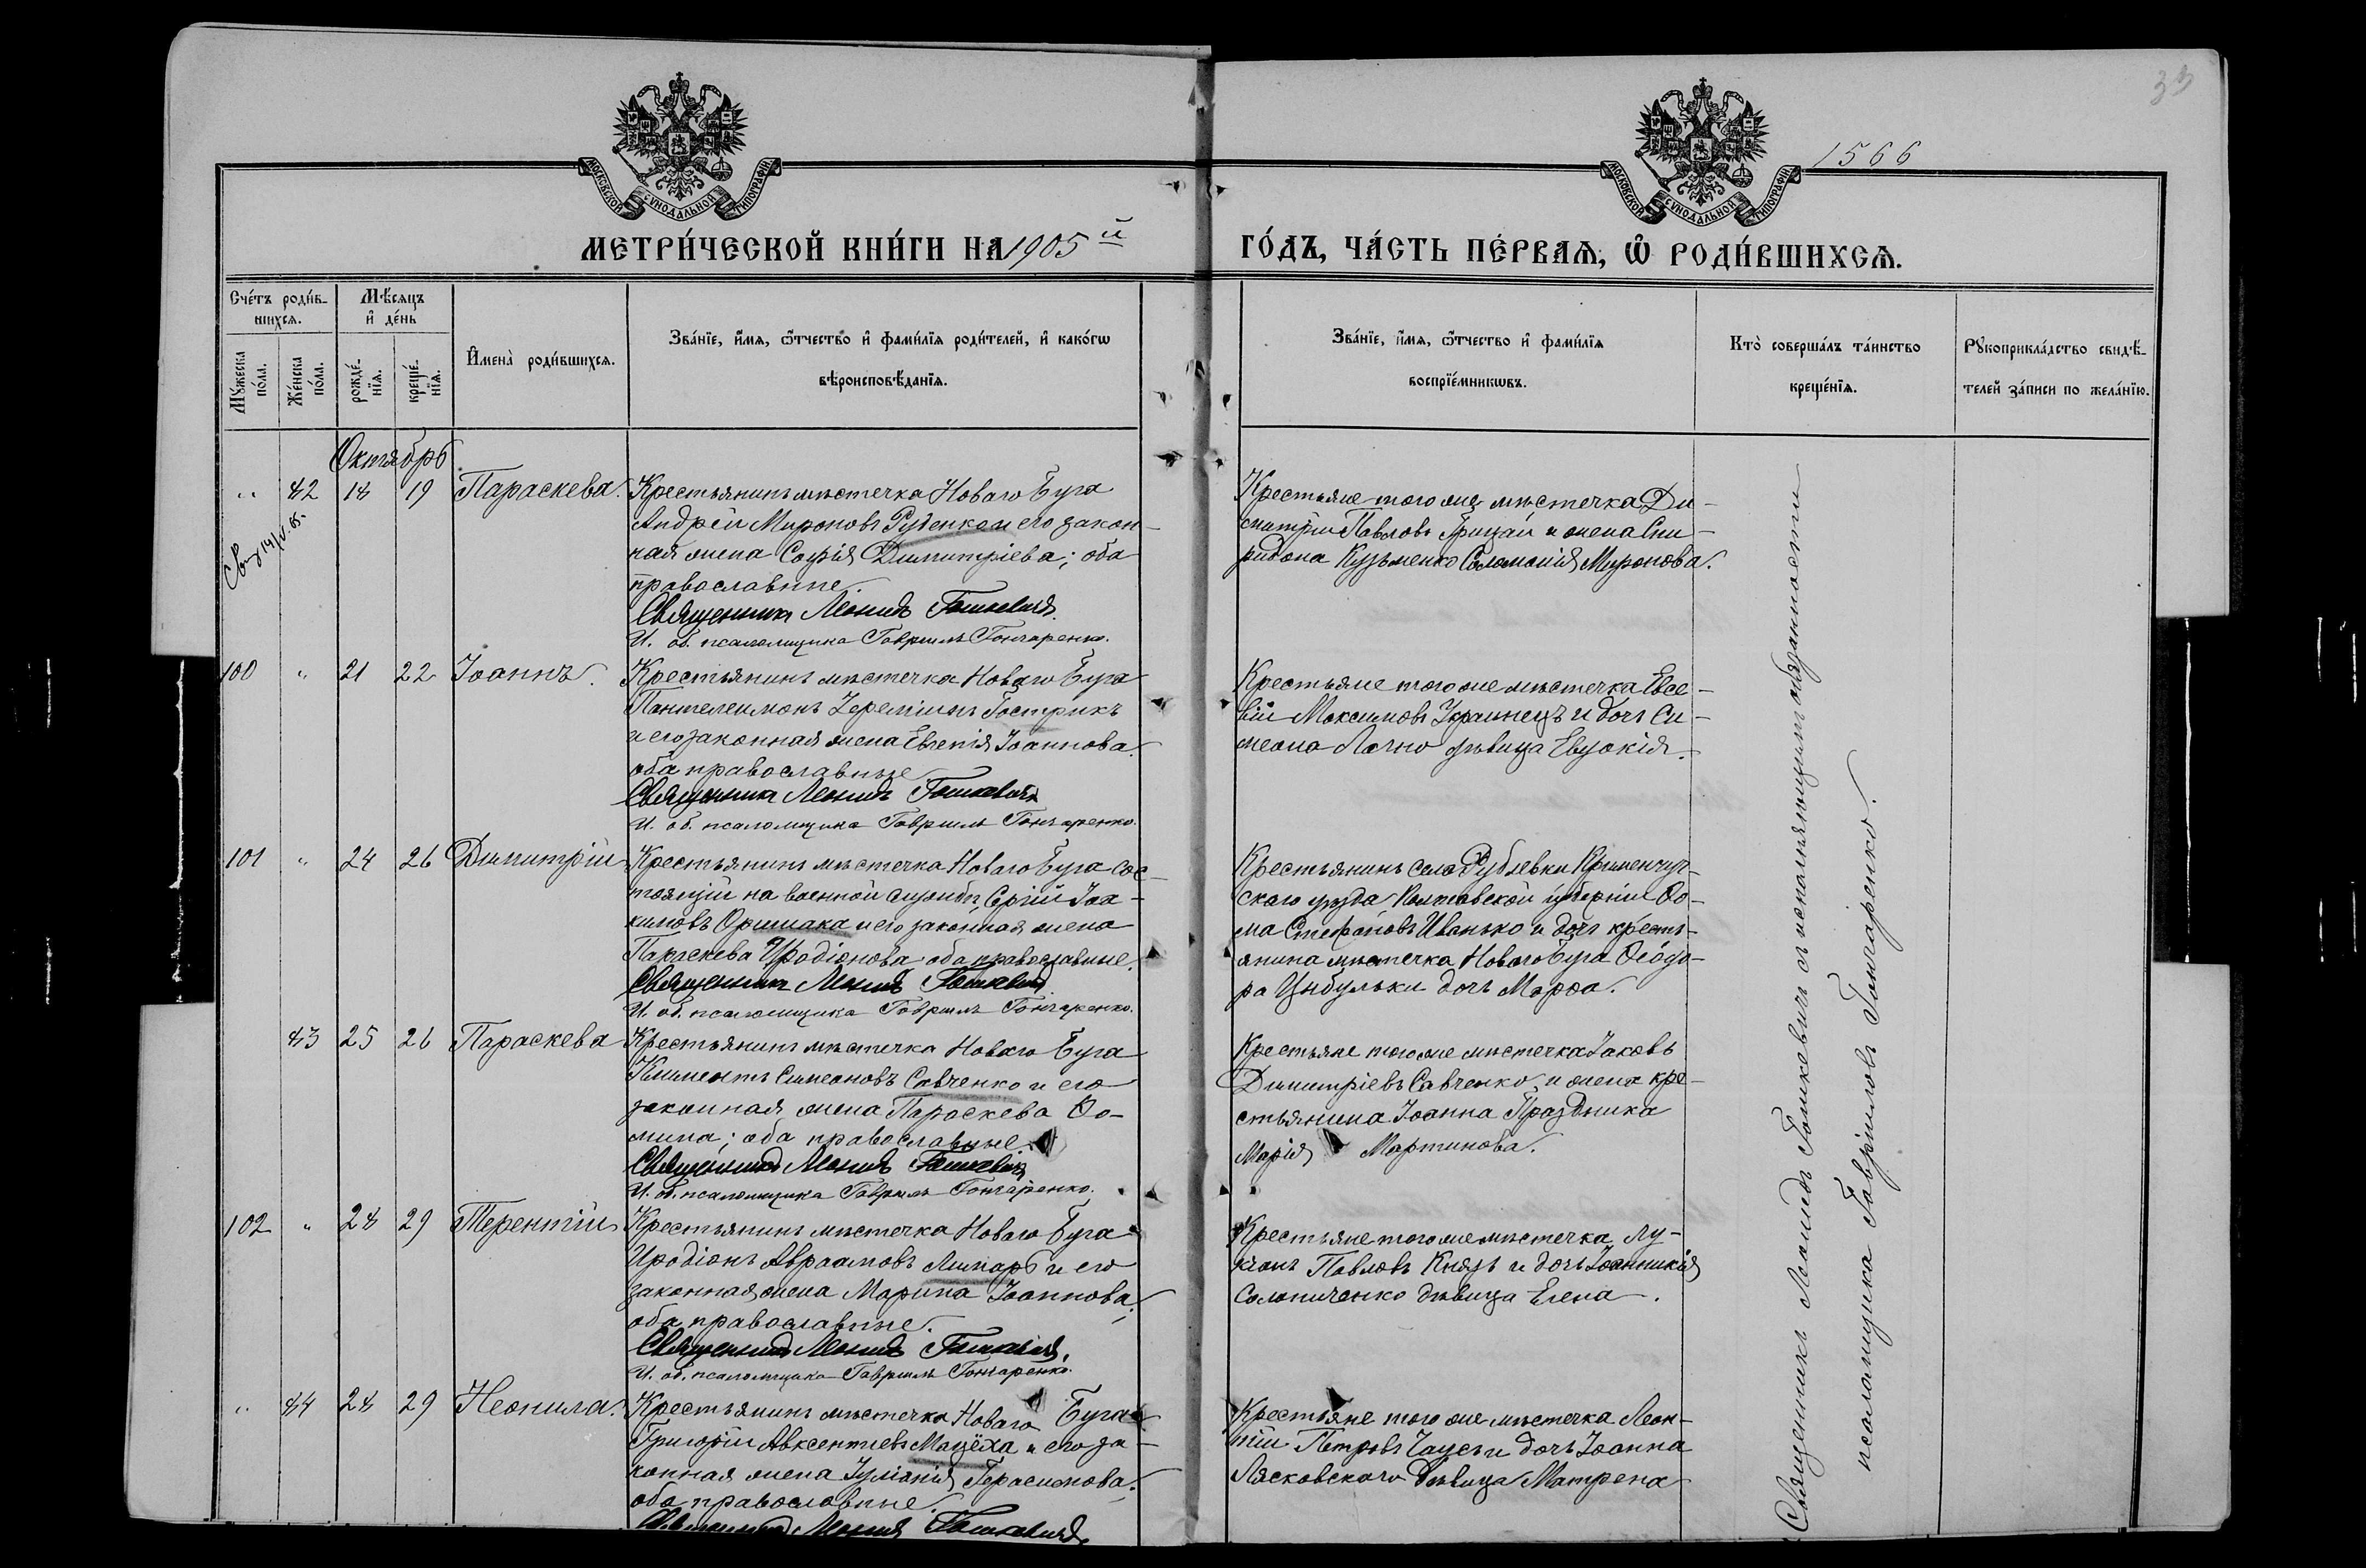 33
1566
МОСКОВСКОЙ СѴНОДАЛЬНОЙ ТИПОГРАФІИ
МОСКОВСКОЙ СѴНОДАЛЬНОЙ ТИПОГРАФІИ
МЕТРИ́ЧЕСКОЙ КНИ́ГИ НА 1905 й
ГО́ДЪ, ЧА́СТЬ ПЕ́РВАѦ, Ѽ РОДИ́ВШИХСѦ.
Сче́тъ роди́в-
шихсѧ.
Мꙋ́жеска по́ла.
Же́нска по́ла.
Мѣ́сѧцъ и҆ де́нь
рожде́-
нїѧ.
креще́-
нїѧ.
И҆мена̀ роди́вшихсѧ.
Зва́нїе, и҆́мѧ, ѻ҆́тчество и҆ фами́лїѧ роди́телей, и҆ како́гѡ
вѣроисповѣ́данїѧ.
Зва́нїе, и҆́мѧ, ѻ҆́тчество и҆ фами́лїѧ
воспрїе́мникѡвъ.
Кто̀ соверша́лъ та́инство
креще́нїѧ.
Рꙋкоприкла́дство свидѣ́-
телей за́писи по жела́нїю.
Октябрь
„ 82 18 19 Параскева.
Крестьянинъ мѣстечка Новаго Буга
Андрей Мироновъ Руденко и его закон-
ная жена Софія Димитріева; оба
православные.
Священникъ Леонидъ Гошкевичъ.
И. об. псаломщика Гавріилъ Гончаренко.
Крестьяне того же мѣстечка Ди-
митрій Павловъ Грицай и жена Спи-
ридона Кузьменко Соломонія Миронова.
100 „ 21 22 Іоаннъ.
Крестьянинъ мѣстечка Новаго Буга
Пантелеимонъ Іереміинъ Гострикъ
и его законная жена Евгенія Іоаннова
оба православные
Священникъ Леонидъ Гошкевичъ
И. об. псаломщика Гавріилъ Гончаренко.
Крестьяне того же мѣстечка Евсе-
вій Максимовъ Украинецъ и дочь Си-
меона Лячно дѣвица Евдокія.
101 „ 24 26 Димитрій
Крестьянинъ мѣстечка Новаго Буга сос-
тоящій на военной службѣ Сергій Іоа-
кимовъ Оришака и его законная жена
Параскева Иродіонова оба православные.
Священникъ Леонидъ Гошкевичъ
И. об. псаломщика Гавріилъ Гончаренко.
Крестьянинъ села Рублевки Кременчуг-
скаго уѣзда Полтавской губерніи Ѳо-
ма Стефановъ Иванько и дочь кресть-
янина мѣстечка Новаго Буга Ѳеодо-
ра Цыбульки дочь Марѳа.
83 25 26 Параскева
Крестьянинъ мѣстечка Новаго Буга
Климентъ Симеоновъ Савченко и его
законная жена Параскева Ѳо-
мина; оба православные.
Священникъ Леонидъ Гошкевичъ
И. об. псаломщика Гавріилъ Гончаренко.
Крестьяне того же мѣстечка Іаковъ
Димитріевъ Савченко и жена кре-
стьянина Іоанна Праздника
Марія Мартинова.
102 „ 28 29 Терентій
Крестьянинъ мѣстечка Новаго Буга
Иродіонъ Авраамовъ Лимарь и его
законная жена Марина Іоаннова,
оба православные.
Священникъ Леонидъ Гошкевичъ.
И. об. псаломщика Гавріилъ Гончаренко.
Крестьяне того же мѣстечка Лу-
кіанъ Павловъ Князь и дочь Іоанникія
Солониченко дѣвица Елена.
„ 84 28 29 Неонила.
Крестьянинъ мѣстечка Новаго Буга
Григорій Авксентіевъ Мацёха и его за-
конная жена Іуліанія Герасимова.
оба православные.
Священникъ Леонидъ Гошкевичъ
Крестьяне того же мѣстечка Леон-
тій Петровъ Чаусъ и дочь Іоанна
Лясковскаго дѣвица Матрена
Священникъ Леонидъ Гошкевичъ съ исполняющимъ обязанности
псаломщика Гавріиломъ Гончаренко.